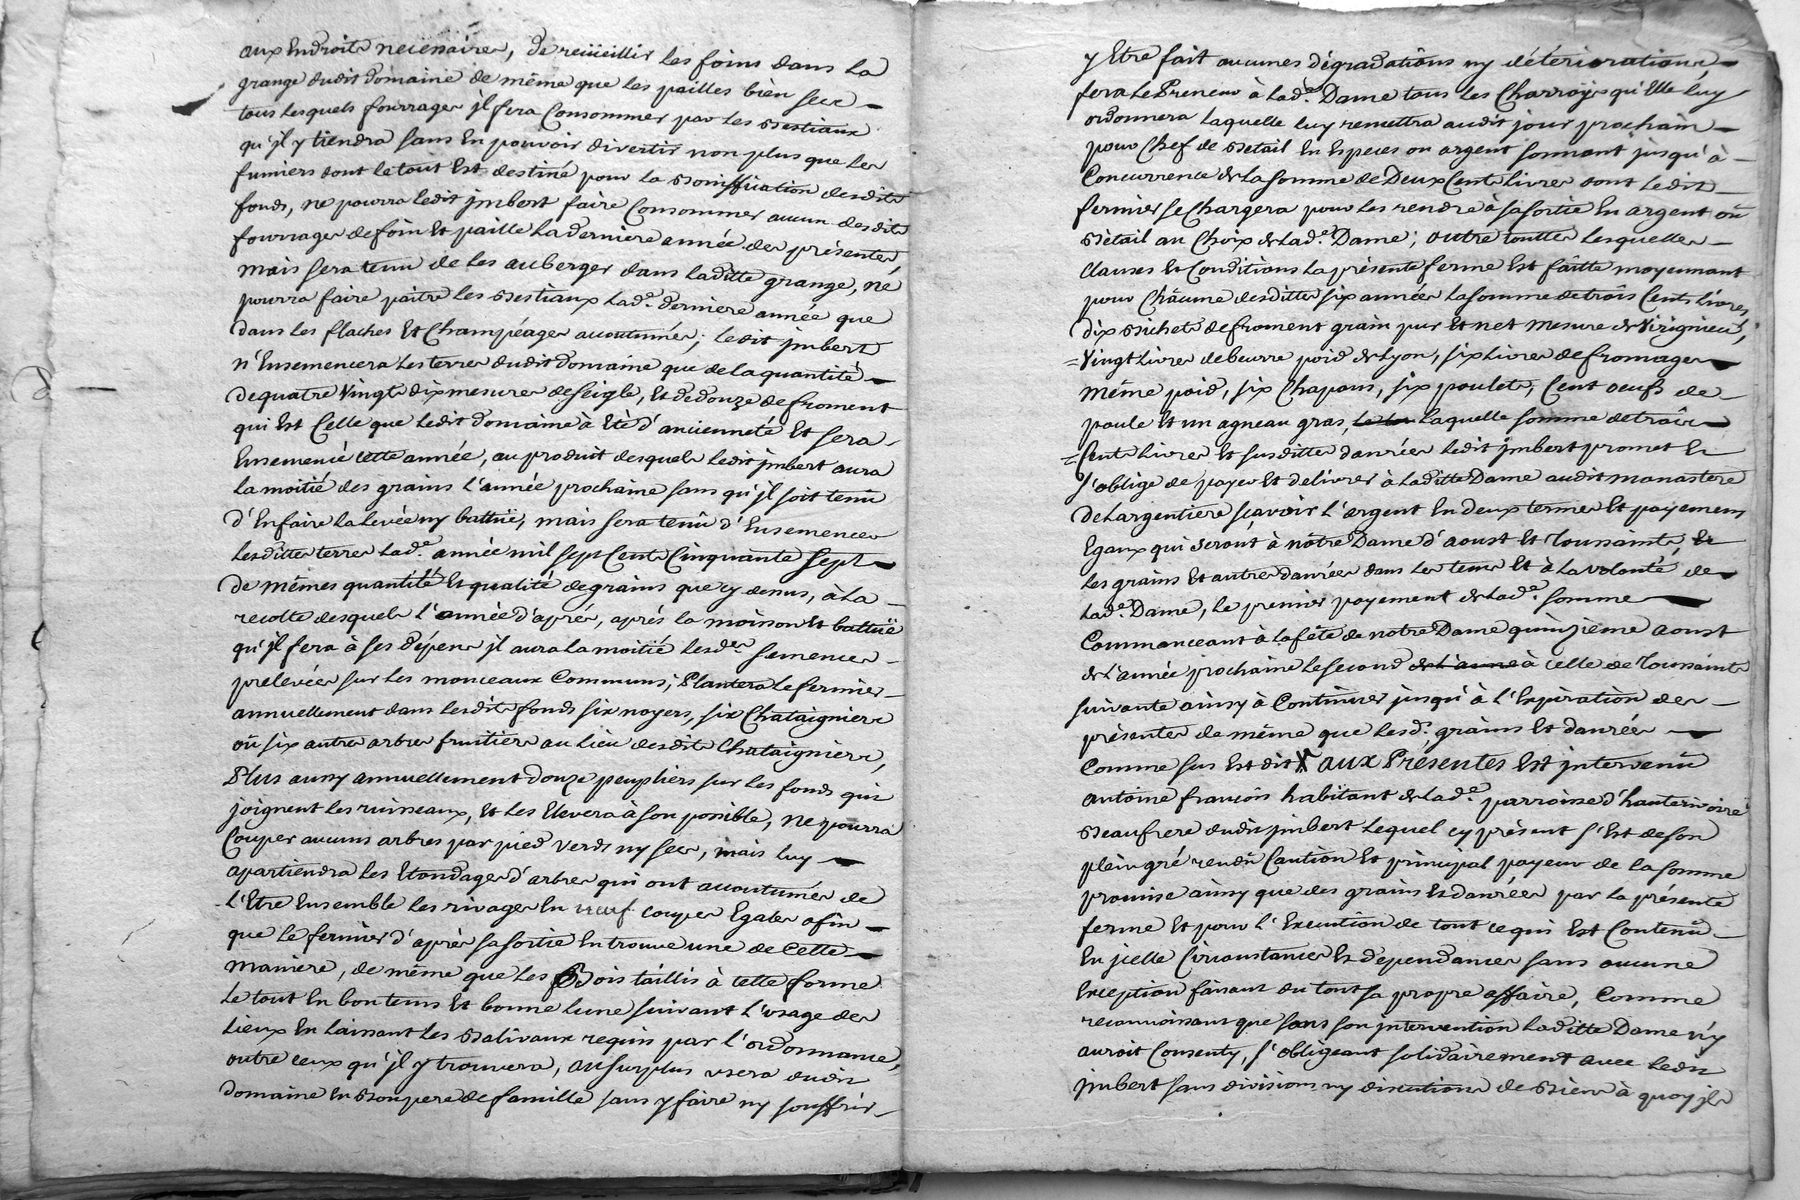 aux Endroits necessaires, de reciieillir les foins dans la
grange dudit Domaine de même que les pailles bièn secs
tous lesquels fourrages jl fera Consommer par les Bestiaux
qu'jl y tiendra sans En pouvoir divertir non plus que les
fumiers dont le tout Est destiné pour la Boniffication desdits
fonds, ne pourra ledit jmbert faire Consommer aucun desdits
fourrages de foin Et paille La derniere année des présentes,
mais sera tenu de les auberger dans laditte grange, ne
pourra faire paitre les Bestiaux Lad.e derniere année que
dans les flaches Et Champéages accoutumés; ledit jmbert
n'Ensemencera Les terres dudit Domaine que de la quantité
de quatre Vingts dix mesures de Seigle, Et de douze de froment
qui Est Celle que ledit domaine à Eté d'ancienneté Et sera
Ensemencé cette année, au produit desquels ledit jmbert aura
La moitié des grains L'année prochaine sans qu'jl soit tenu
d'En faire La Levée ny battuë, mais sera tenû d'Ensemencer
Lesdittes terres Lad.e année mil sept Cents Cinquante Sept
de mêmes quantité Et qualité de grains que cy dessus, à La
recolte desquels L'année d'aprés, aprés la moisson Et battuë
qu'jl fera à ses Dépens jl aura La moitié Lesd.es semences
prelevées sur Les monceaux Communs; Plantera Le fermier
annuellement dans lesdits fonds six noyers, six Chataigniers
où six autres arbres fruitiers au Lieu desdits Chataigniers,
Plus aussy annuellement douze peupliers sur Les fonds qui
joignent Les ruisseaux, Et Les Elevera à son possible, ne pourra
Couper aucuns arbres par pied verds ny secs, mais luy
apartiendra les Etondages d'arbres qui ont accoutumés de
L'Etre Ensemble Les rivages En neuf coupes Egales afin
que Le fermier d'aprés sa sortie En trouve une de Cette
maniere, de même que Les Bois taillis à cette forme
Le tout En bon tems Et bonne lune suivant L'usage des
Lieux En Laissant Les Balivaux requis par L'ordonnance,
outre ceux qu'jl y trouvera, au surplus usera dudit
Domaine En Bon pere de famille sans y faire ny souffrir
y Etre fait aucunes dégradations ny détériorations
fera Le Preneur à Lad.e Dame tous Les Charrojs qu'Elle luy
ordonnera laquelle luy remettra audit jour prochain
pour Chef de Bétail En Especes ou argent sonnant jusqu'à
Concurrence de La somme de Deux Cents Livres dont ledit
fermier se Chargera pour les rendre à sa sortie En argent où
Bétail au Choix de Lad.e Dame; outre toutes lesquelles
Clauses Et Conditions La présente ferme Est faitte moyennant
pour Châcune desdittes six années La somme de trois Cents Livres,
dix Bichets de froment grain pur Et net mesure de Virignieu,
Vingt Livres de beurre poid de Lyon, six Livres de fromages
même poid, six Chapons, six poulets, Cent oeufs de
poule Et un agneau gras, laquelle somme de trois
Cents Livres Et susdittes danrées ledit jmbert promet Et
s'oblige de payer Et delivrer à Laditte Dame audit monastere
de Largentiere sçavoir L'argent En deux termes Et payemens
Egaux qui seront à nôtre Dame d'aoust Et Toussaints, Et
les grains Et autres danrées dans Les tems Et à La volonté de
Lad.e Dame, le premier payement de Lad.e somme
Commanceant à La fête de notre Dame quinzieme aoust
de L'année prochaine Le second de L'année à celle de Toussaints
suivante ainsy à Continuer jusqu'à L'Expiration des
présentes de même que Lesd.s grains Et danrées
Comme sus Est dit aux Présentes Est jntervenû
antoine françois habitant de Lad.e parroisse d'hauterivoire
Beaufrere dudit jmbert Lequel cy présent s'Est de son
plein gré rendû Caution Et principal payeur de la somme
promise ainsy que des grains Et danrées par la présente
ferme Et pour L'Execution de tout ce qui Est Contenû
En jcelle Circonstances Et dépendances sans aucune
Exception faisant du tout sa propre affaire, Comme
reconnoissant que sans son jntervention Laditte Dame n'y
auroit Consenty, s'obligeant solidairement avec ledit
jmbert sans divisions ny discutions de Biens à quoy jls